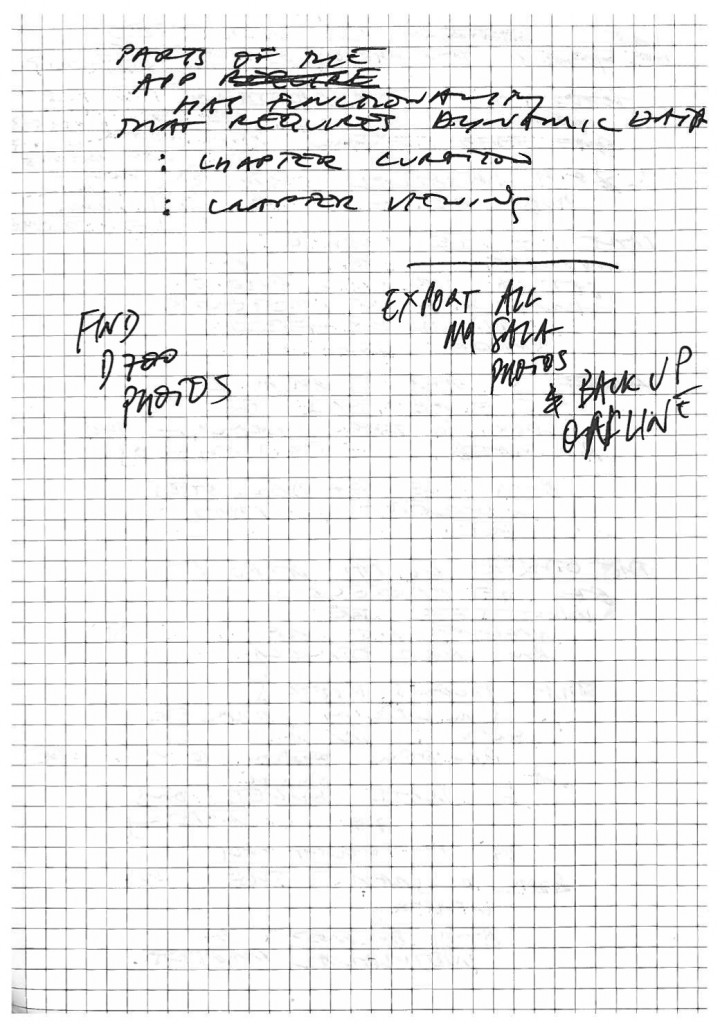 PARTS OF THE
APP REQUIRE
HAS FUNCTIONALITY
THAT REQUIRES DYNAMIC DATA
: CHAPTER CURATION
: CHAPTER VIEWING
FIND
D700
PHOTOS
EXPORT ALL
PHOTOS
& BACK UP
OFFLINE